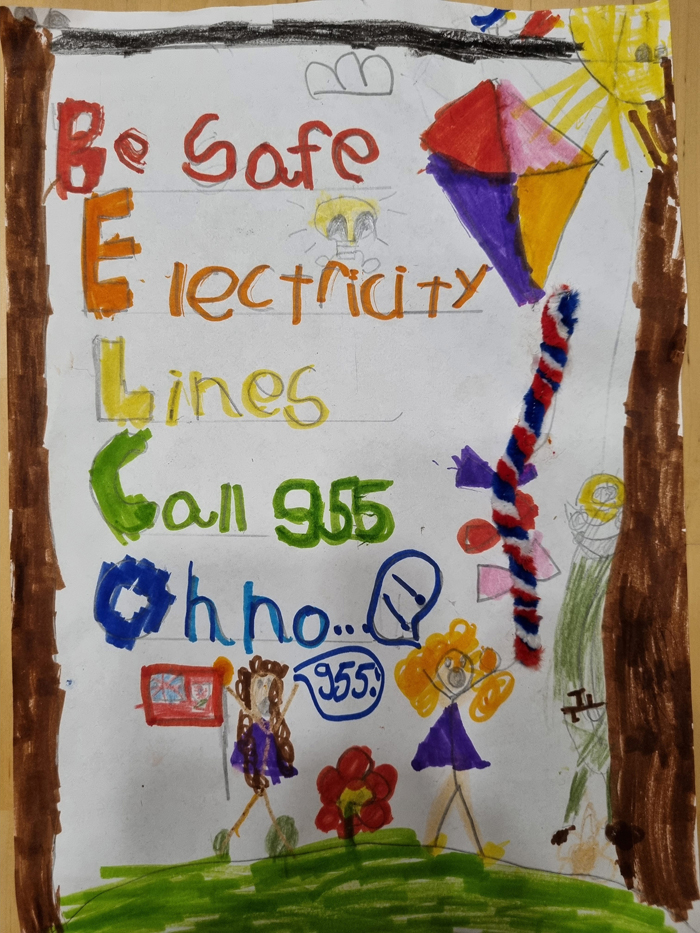 Be Safe
Electricity
Lines
Call 955
Oh no... !!
955!